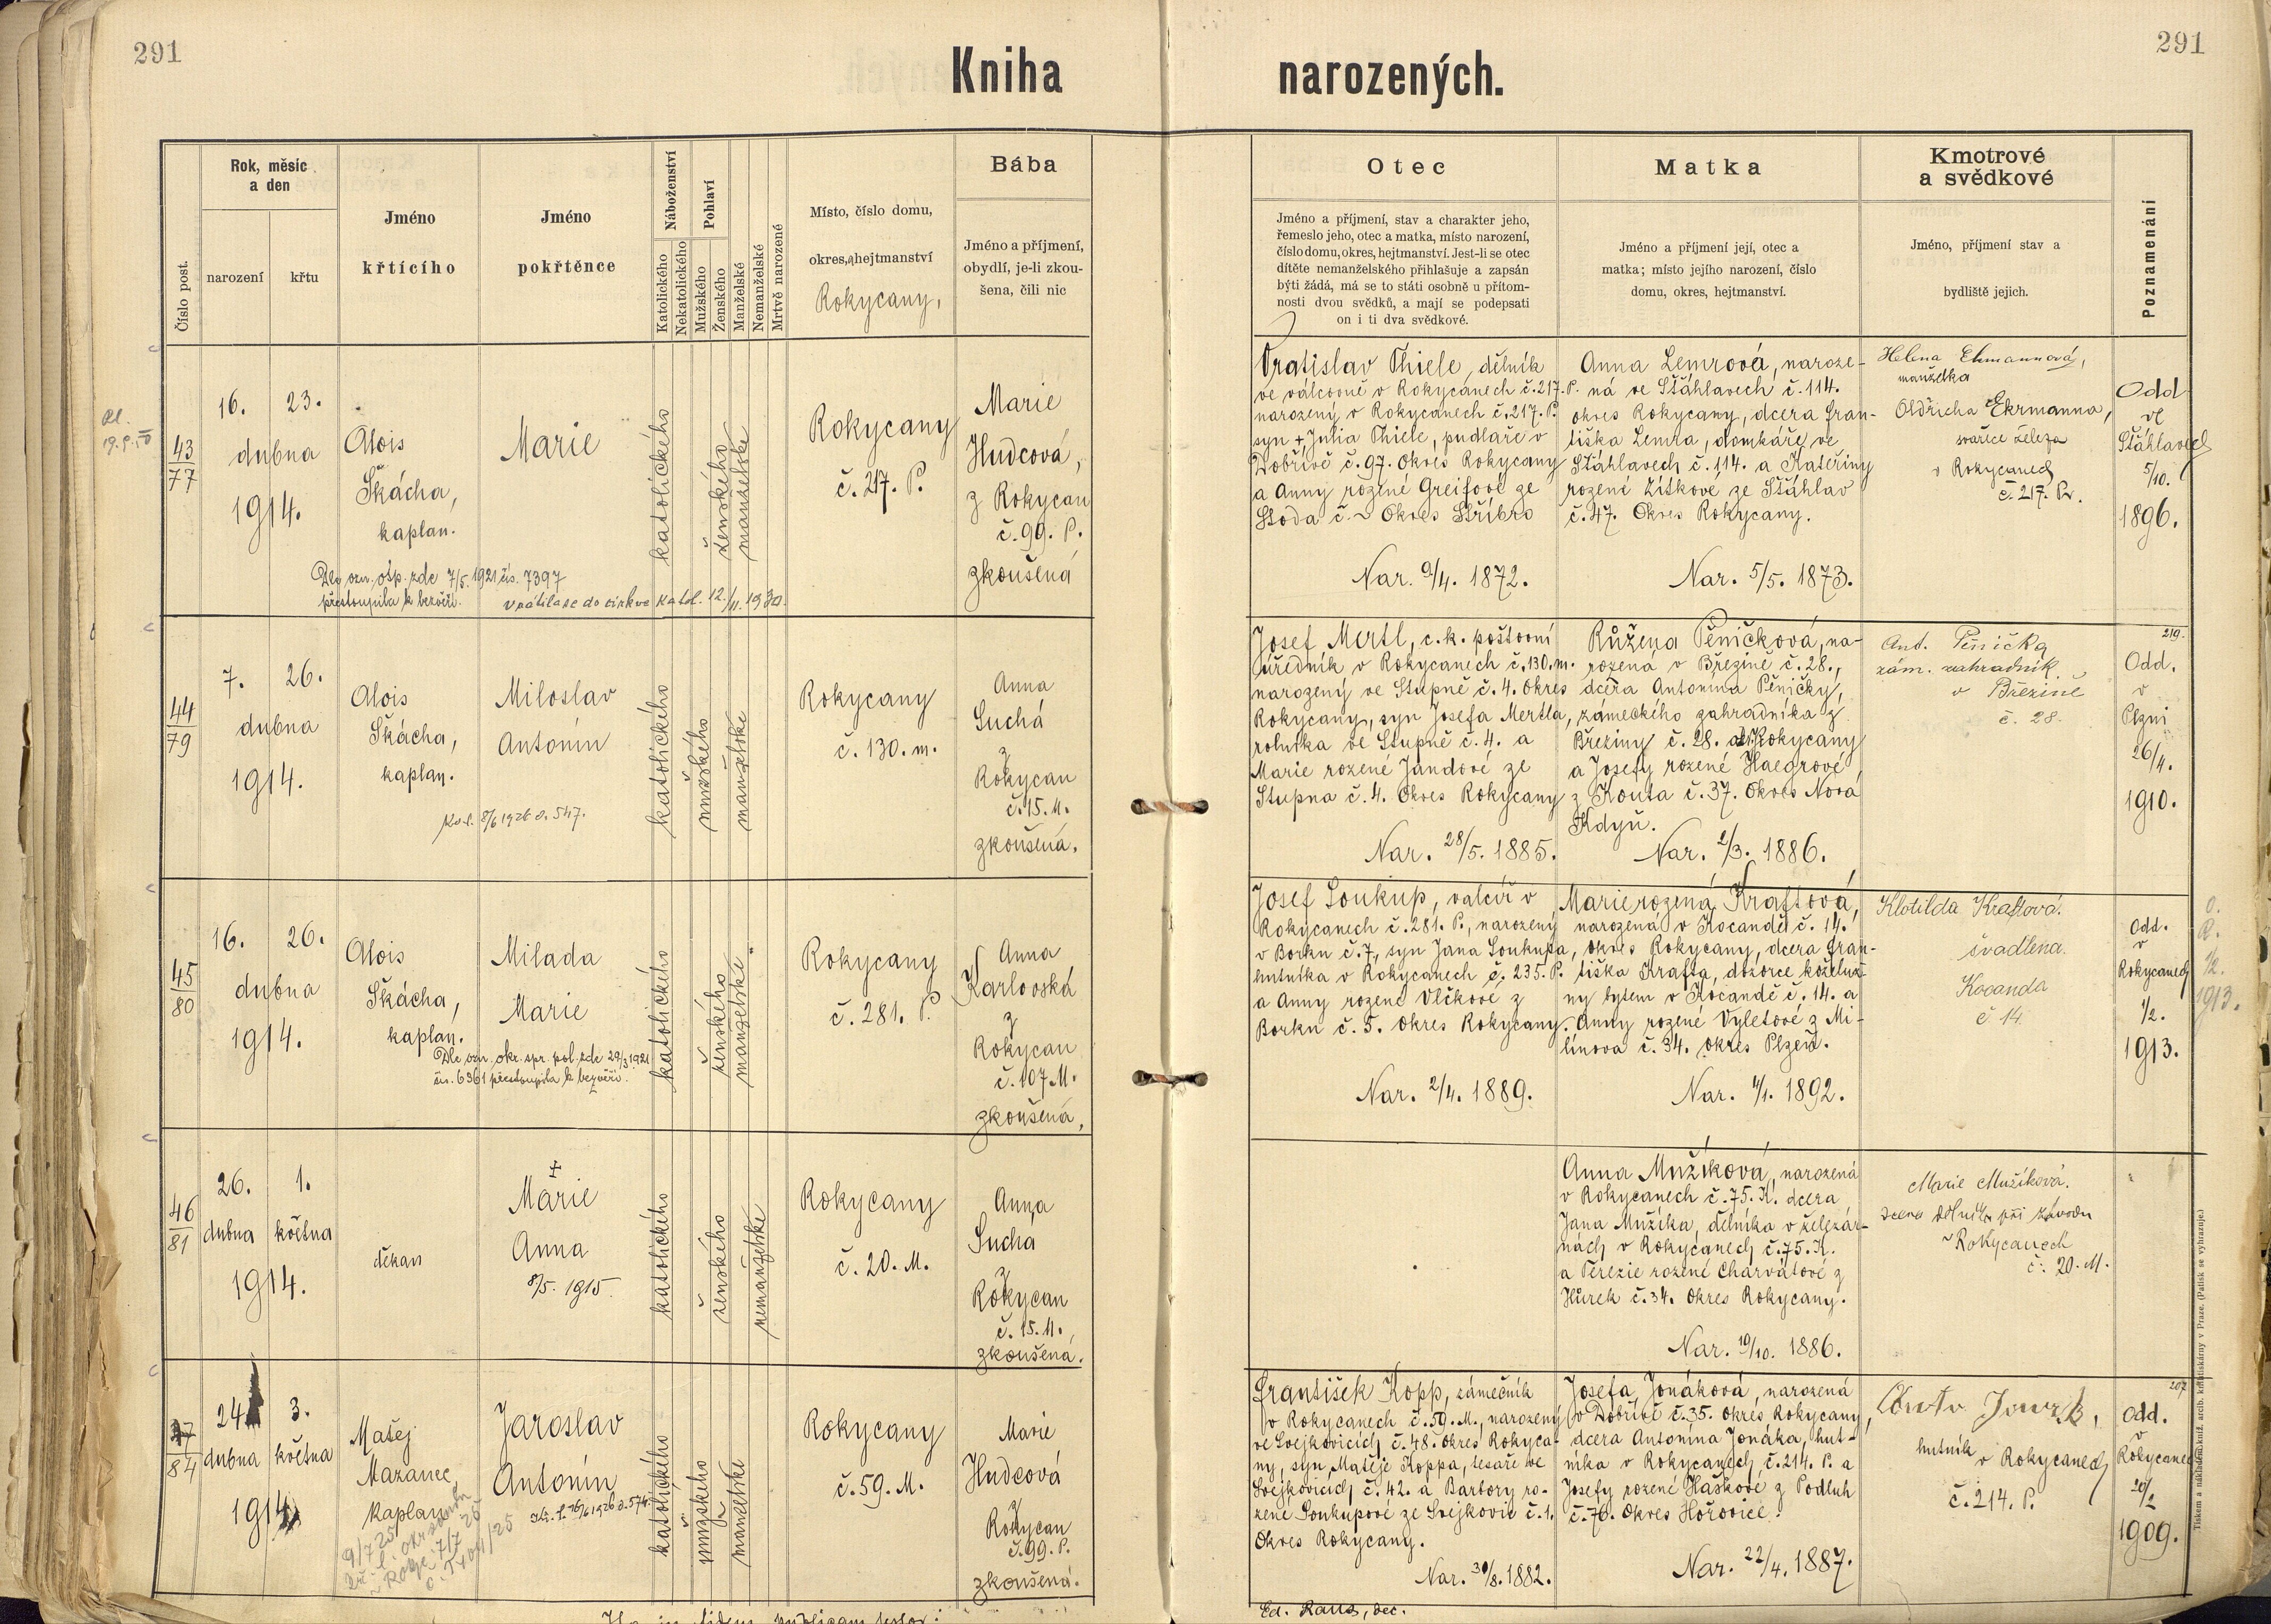 291
291
Kniha
narozených.
Číslo post.
Rok, měsíc
a den
narození
křtu
Jméno
křtícího
Jméno
pokřtěnce
Náboženství
Katolického
Nekatolického
Pohlaví
Mužského
Ženského
Manželské
Nemanželské
Mrtvě narozené
Místo, číslo domu,
okres, hejtmanství
Rokycany,
Bába
Jméno a příjmení,
obydlí, je-li zkou-
šena, čili nic
Otec
Jméno a příjmení, stav a charakter jeho,
řemeslo jeho, otec a matka, místo narození,
číslo domu, okres, hejtmanství. Jest-li se otec
dítěte nemanželského přihlašuje a zapsán
býti žádá, má se to státi osobně u přítom-
nosti dvou svědků, a mají se podepsati
on i ti dva svědkové.
Matka
Jméno a příjmení její, otec a
matka; místo jejího narození, číslo
domu, okres, hejtmanství.
Kmotrové
a svědkové
Jméno, příjmení stav a
bydliště jejich.
Poznamenání
43
77
16. 23.
dubna
1914.
Alois
Škácha,
kaplan.
Marie
katolického
ženského
manželské
Rokycany
č. 217. P.
Marie
Hudcová,
z Rokycan
č. 99. P.
zkoušená
Dle ozn. osp. zde 7/5. 1921 čís. 7397
přestoupila k bezvěří.
vrátila se do církve katol. 12./11. 1930.
Vratislav Thiele, dělník
ve válcovně v Rokycanech č. 217. P.
narozený v Rokycanech č. 217. P.
syn + Julia Thiele, pudlaře v
Dobřívě č. 97. Okres Rokycany
a Anny rozené Greifové ze
Stoda č. - Okres Stříbro
Nar. 9/4. 1872.
Anna Lemrová, naroze-
ná ve Šťáhlavech č. 114.
okres Rokycany, dcera Fran-
tiška Lemra, domkáře ve
Šťáhlavech č. 114. a Kateřiny
rozené Zítkové ze Šťáhlav
č. 47. Okres Rokycany.
Nar. 5/5. 1873.
Helena Ehrmannová,
manželka
Oldřicha Ehrmanna,
svářče železa
v Rokycanech
č. 217. Pr.
Odd
ve
Šťáhlavech
5/10.
1896.
44
79
7. 26.
dubna
1914.
Alois
Škácha,
kaplan.
Miloslav
Antonín
8/6 1926 č. 547.
katolického
mužského
manželské
Rokycany
č. 130. m.
Anna
Suchá
z
Rokycan
č. 15. M.
zkoušená.
Josef Mertl, c. k. poštovní
úředník v Rokycanech č. 130. m.
narozený ve Stupně č. 4. Okres
Rokycany, syn Josefa Mertla,
rolníka ve Stupně č. 4. a
Marie rozené Jandové ze
Stupna č. 4. Okres Rokycany
Nar. 28/5. 1885.
Růžena Pěničková, na-
rozená v Březině č. 28.,
dcera Antonína Pěničky,
zámeckého zahradníka z
Březiny č. 28. Rokycany
a Josefy rozené Haegrové
z Kouta č. 37. Okres Nová
Kdyň.
Nar. 2/3. 1886.
Ant. Pěnička
zám. zahradník
v Březině
č. 28.
219.
Odd.
v
Plzni
26/4.
1910.
45
80
16. 26.
dubna
1914.
Alois
Škácha,
kaplan.
Milada
Marie
Dle ozn. okr. spr. pol. zde 29/3 1921
čís. 6361 přestoupila k bezvěří.
katolického
ženského
manželské
Rokycany
č. 281. P.
Anna
Karlovská
z
Rokycan
č. 107 M.
zkoušená,
Josef Soukup, valcíř v
Rokycanech č. 281. P., narozený
v Borku č. 7, syn Jana Soukupa,
hutníka v Rokycanech č. 235. P.
a Anny rozené Vlčkové z
Borku č. 5. Okres Rokycany.
Nar. 2/4. 1889.
Marie rozená Kraftová,
narozená v Kocandě č. 14.
okres Rokycany, dcera Fran-
tiška Krafta, dozorce koželuž-
ny bytem v Kocandě č. 14. a
Anny rozené Vyletové z Mi-
línova č. 34. okres Plzeň.
Nar. 1892.
Klotilda Kraftová.
švadlena.
Kocanda
č 14
Odd.
v
Rokycanech
1/2.
1913.
1/2.
1913.
46
81
26. 1.
dubna května
1914.
děkan
Marie
Anna
8/5. 1915
katolického
ženského
nemanželské
Rokycany
č. 20. M.
Anna
Suchá
z
Rokycan
č. 15. M.,
zkoušená.
Anna Mužíková, narozená
v Rokycanech č. 75. K. dcera
Jana Mužíka, dělníka v železár-
nách v Rokycanech č. 75. K.
a Terezie rozené Charvátové z
Hůrek č. 34. Okres Rokycany.
Nar. 19/10. 1886.
Marie Mužíková.
dcera dělníka při závodu
v Rokycanech
č. 20. M.
47
84
24. 3.
dubna května
1914
Matěj
Mazanec
kaplan
Jaroslav
Antonín
katolického
mužského
manželské
Rokycany
č. 59. M.
Marie
Hudcová
z
Rokycan
č. 99. P.
zkoušená.
František Kopp, zámečník
v Rokycanech č. 59. M., narozený
ve Svejkovicích č. 48. Okres Rokyca-
ny, syn Matěje Koppa, tesaře ve
Svejkovicích č. 42. a Barbory ro-
zené Soukupové ze Svejkovic č. 1.
Okres Rokycany.
Nar. 30/8. 1882.
Josefa Jonáková, narozená
v Dobřívě č. 35. Okres Rokycany,
dcera Antonína Jonáka, hut-
níka v Rokycanech č. 214. P. a
Josefy rozené Haškové z Podluh
č. 76. Okres Hořovice.
Nar. 22/4. 1887.
hutník v Rokycanech
č. 214. P.
207
Odd.
v
Rokycanech
20/2
1909.
Ed. Raus, dec.